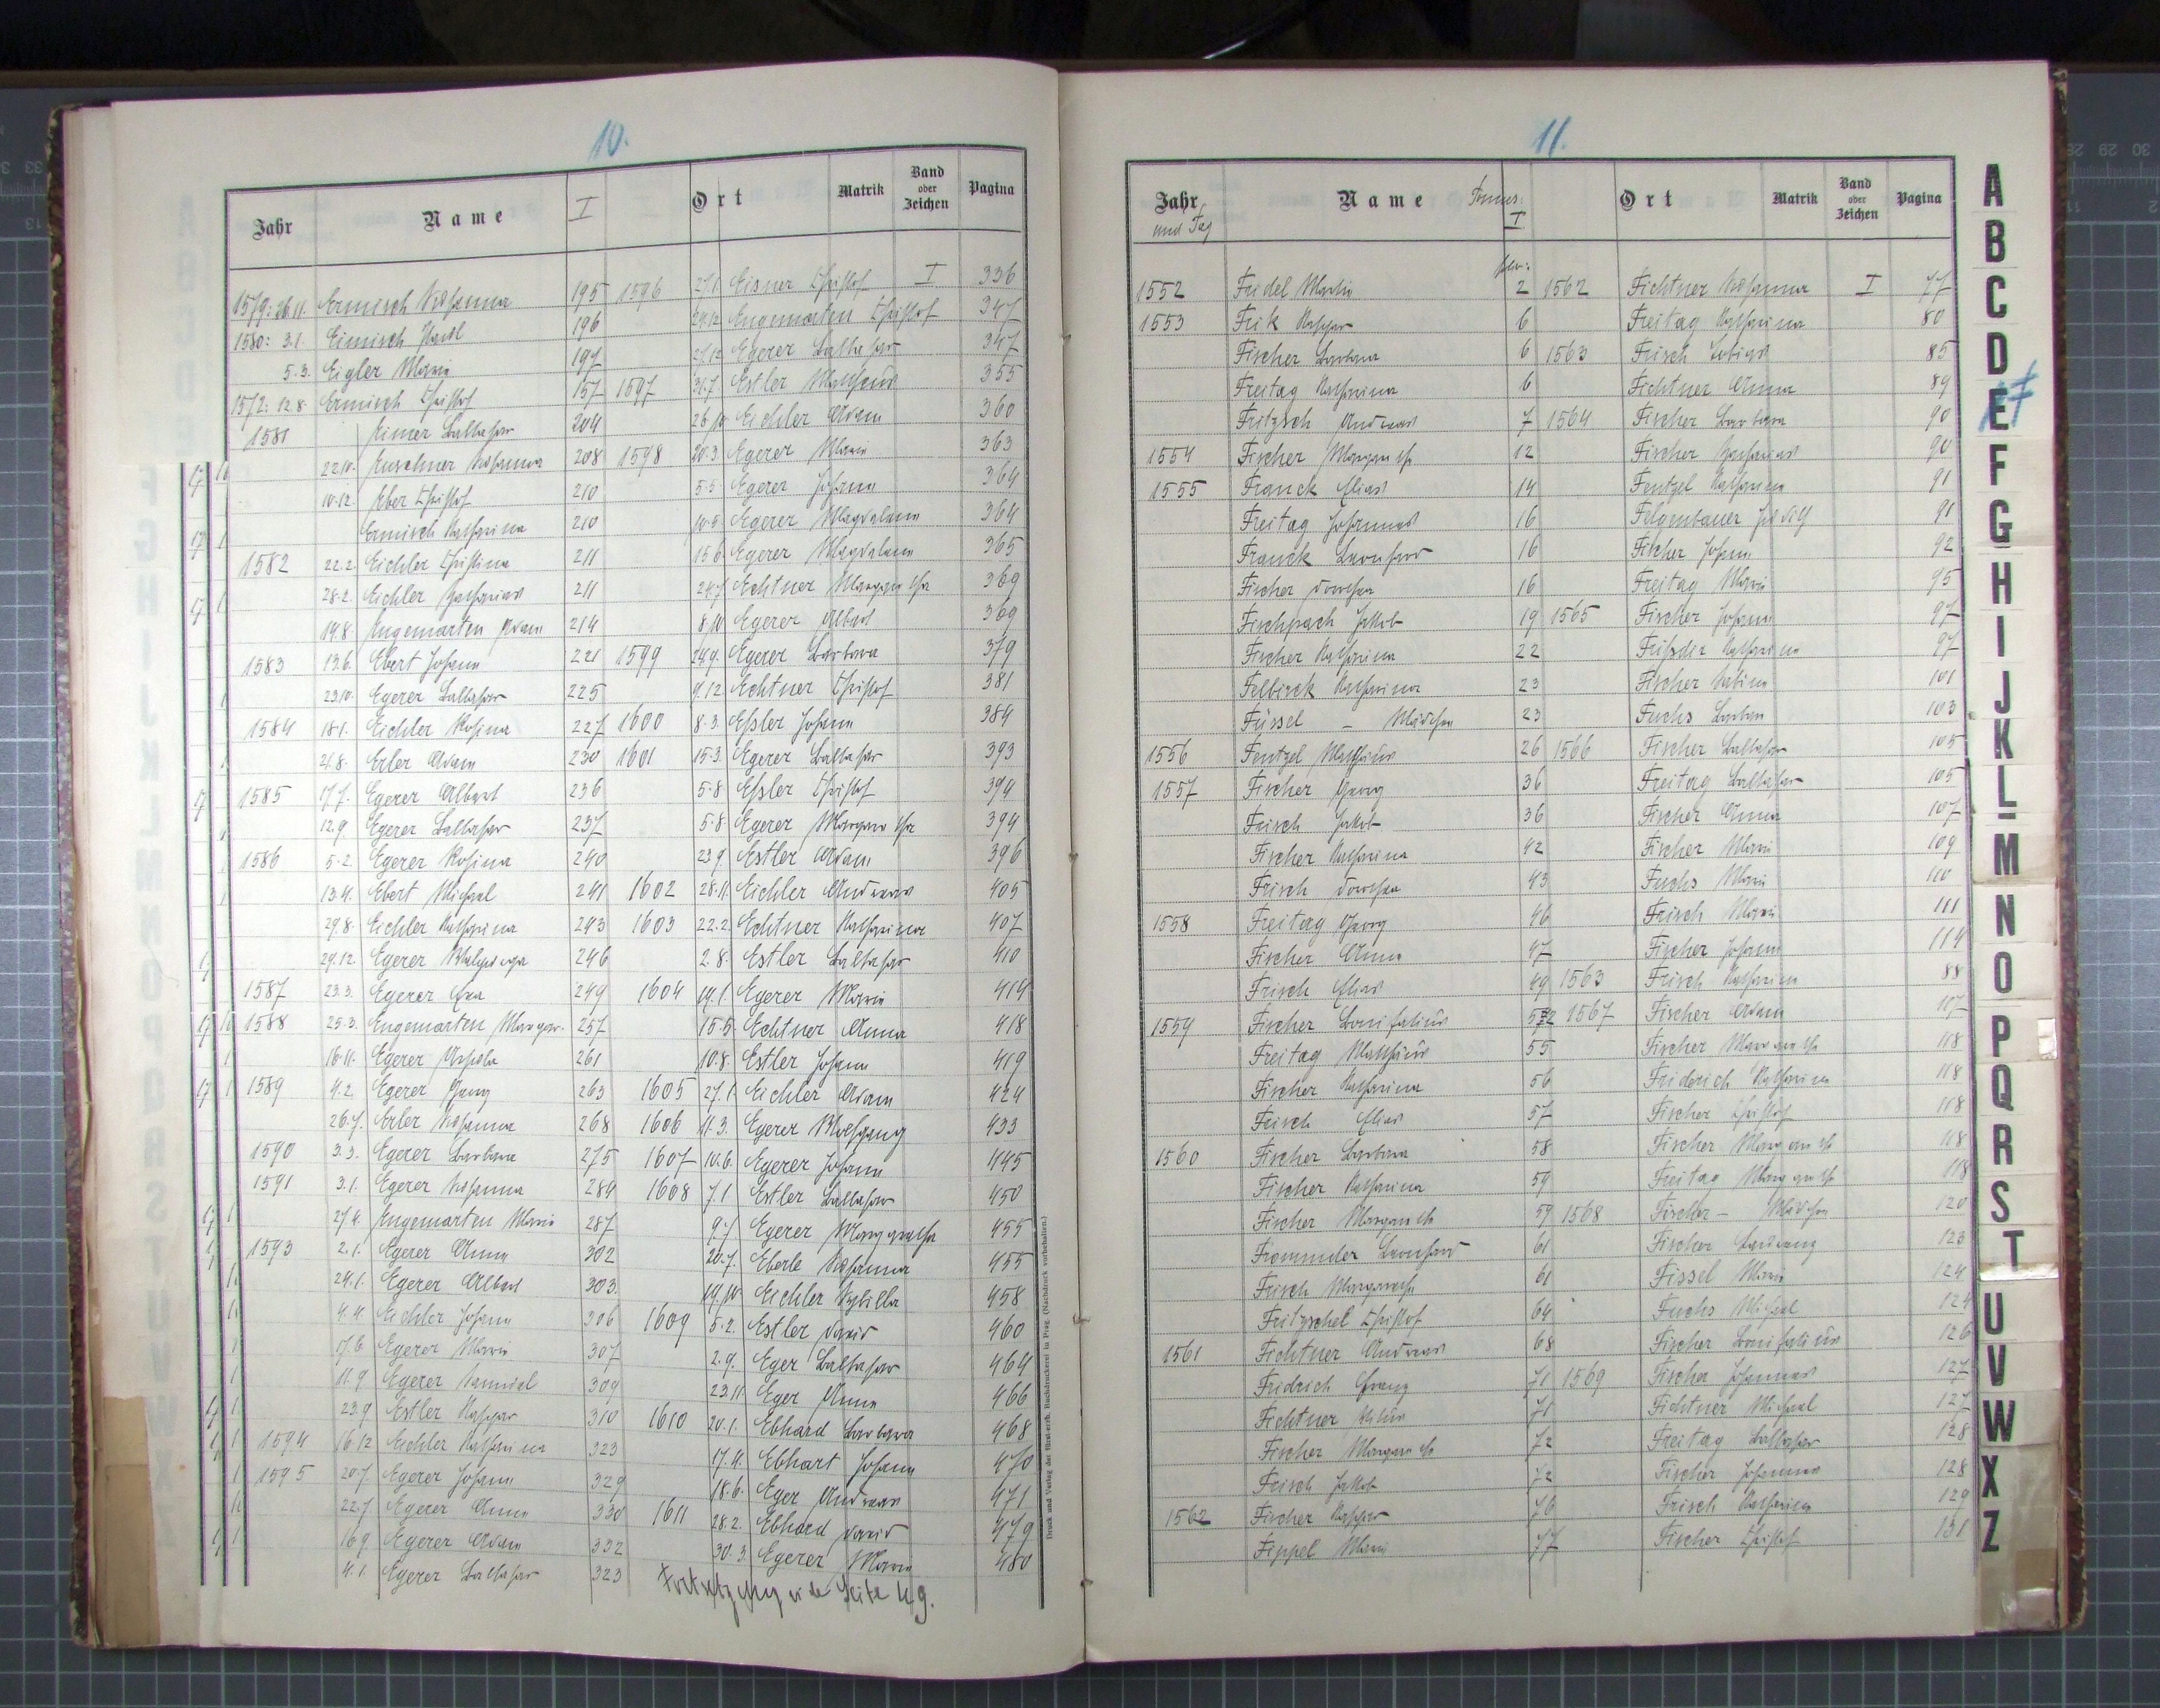 10.
Jahr Name I Ort Matrik Band oder Zeichen Pagina
1579: 26.11. Ermisch Rosanna 195 1596 27.1 Eisner Christof I 336
1580: 3.1. Eimisch 196 24.12 Engemarten Christof 347
5.3. Eigler Maria 197 27.12 Egerer Balthasar 347
1572: 12.8. Ermisch Christof 157 1597 31.7 Estler Mathäus 355
1581 Balthasar 204 Eichler Adam 360
22.10. 208 1598 20.3 Egerer Maria 363
10.12. Eber Christof 210 5.5 Egerer Johann 364
Ermisch Katharina 210 10.5. Egerer Magdalena 364
1582 22.2. Eichler Christina 211 15.6 Egerer Magdalena 365
28.2. Eichler Zacharias 211 24.7 Echtner Margaretha 369
19.8. Engemarten Adam 214 Egerer Albert 369
1583 13.6. Ebert Johann 221 1599 24.9. Egerer Barbara 379
23.10. Egerer Balthasar 225 9.12 Echtner Christof 381
1584 18.1. Eichler Rosina 227 1600 8.3. Eßler Johann 384
21.8. Erler Adam 230 1601 15.3. Egerer Balthasar 393
1585 17.7. Egerer Albert 236 5.8 Eßler Christof 394
12.9 Egerer Balthasar 237 5.8 Egerer Margaretha 394
1586 5.2 Egerer Rosina 240 23.9. Estler Adam 396
13.4. Ebert Michael 241 1602 28.11. Eichler Andreas 405
29.8. Eichler Katharina 243 1603 22.2. Echtner Katharina 407
29.12. Egerer 246 2.8. Estler Balthasar 410
1587 23.3. Egerer Eva 249 1604 19.1. Egerer Maria 414
1588 25.3. Engemarten Margar. 257 15.5. Echtner Anna 418
16.11. Egerer Ursula 261 10.8. Estler Johann 419
1589 4.2. Egerer Georg 263 1605 27.1. Eichler Adam 424
26.7. Erler Rosanna 268 1606 11.3. Egerer Wolfgang 433
1590 3.3. Egerer Barbara 275 1607 10.6. Egerer Johann 445
1591 3.1. Egerer Rosanna 284 1608 7.1. Estler Balthasar 450
27.4. Engemarten Maria 287 9.7 Egerer Margaretha 455
1593 2.1. Egerer Anna 302 20.7. Eberle Rosanna 455
24.1. Egerer Albert 303. Eichler Sybilla 458
4.4. Eichler Johann 306 1609 5.2. Estler David 460
17.6 Egerer Maria 307 2.9. Eger Balthasar 464
11.9 Egerer 309 23.11. Eger Anna 466
23.9 Estler Kaspar 310 1610 20.1. Ebhard Barbara 468
1594 16.12 Eichler Katharina 323 17.4. Ebhart Johann 470
1595 20.7. Egerer Johann 329 18.6. Eger Andreas 471
22.7. Egerer Anna 330 1611 28.2. Ebhard David 479
16.9. Egerer Adam 332 30.3. Egerer Maria 480
4.1. Egerer Balthasar 323 Fortsetzung Seite 49.
Druck und Verlag der fürst-erzb. Buchdruckerei in Prag. (Nachdruck vorbehalten.)
11.
Jahr und Tag Name I Ort Matrik Band oder Zeichen Pagina
1552 Fridel Martin 2 1562 Fichtner Rosanna I 77
1553 Frik Kaspar 6 Freitag Katharina 80
Fischer Barbara 6 1563 Frisch Tobias 85
Freitag Katharina 6 Fichtner Anna 89
Fritzsch Andreas 7 1564 Fischer Barbara 90
1554 Fischer Margareth 12 Fischer Zacharias 90
1555 Franck Elias 14 Fentzel Katharina 91
Freitag Johannes 16 Felgenbauer 91
Franck Leonhard 16 Fischer Johann 92
Fischer Dorothea 16 Freitag Maria 95
Fischpach Jakob 19 1565 Fischer Johann 97
Fischer Katharina 22 Katharina 97
Felbirck Katharina 23 Fischer Sabina 101
Füssel – Mädchen 23 Fuchs Barbara 103
1556 Fentzel Matthäus 26 1566 Fischer Balthasar 105
1557 Fischer Georg 36 Freitag Balthasar 105
Frisch Jakob 36 Fischer Anna 107
Fischer Katharina 42 Fischer Maria 109
Frisch Dorothea 43 Fuchs Maria 110
1558 Freitag Georg 46 Frisch Maria 111
Fischer Anna 47 Fischer Johann 114
Frisch Elias 49 1563 Frisch Katharina 88
1559 Fischer Bonifatius 52 1567 Fischer Adam 107
Freitag Matthäus 55 Fischer Margareth 118
Fischer Katharina 56 Friderich Katharina 118
Frisch Elias 57 Fischer Christof 118
1560 Fischer Barbara 58 Fischer Margareth 118
Fischer Katharina 59 Freitag Margareth 118
Fischer Margareth 59 1568 Fischer – Mädchen 120
Frommder Leonhard 61 Fischer 123
Frisch Margaretha 61 Fissel Maria 124
Fritzschel Christof 64 Fuchs Michael 124
1561 Fichtner Andreas 68 Fischer Bonifatius 126
Fridrich Georg 71 1569 Fischer Johannes 127
Fichtner 71 Fichtner Michael 127
Fischer Margareth 72 Freitag Balthasar 128
Frisch Jakob 72 Fischer Johannes 128
1562 Fischer Kaspar 76 Frisch Katharina 129
Fippel Maria 77 Fischer Christof 131
A
B
C
D
E
F
G
H
I
J
K
L
M
N
O
P
Q
R
S
T
U
V
W
X
Z